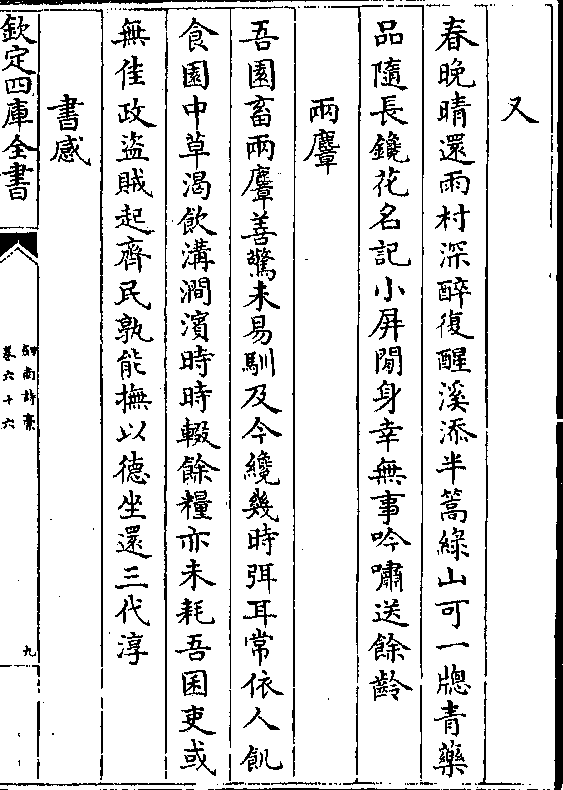 又
春晚晴還雨村深醉復醒溪添半篙綠山可一牎青藥
品隨長鑱花名記小屏閒身幸無事吟嘯送餘齡
兩麞
吾園畜兩麞善驚未易馴及今纔幾時弭耳常依人飢
食園中草渴飲溝澗濱時時輟餘糧亦未耗吾囷吏或
無佳政盜賊起齊民孰能撫以德坐還三代淳
書感
欽定四庫全書
劒南詩稾
卷六十六
九